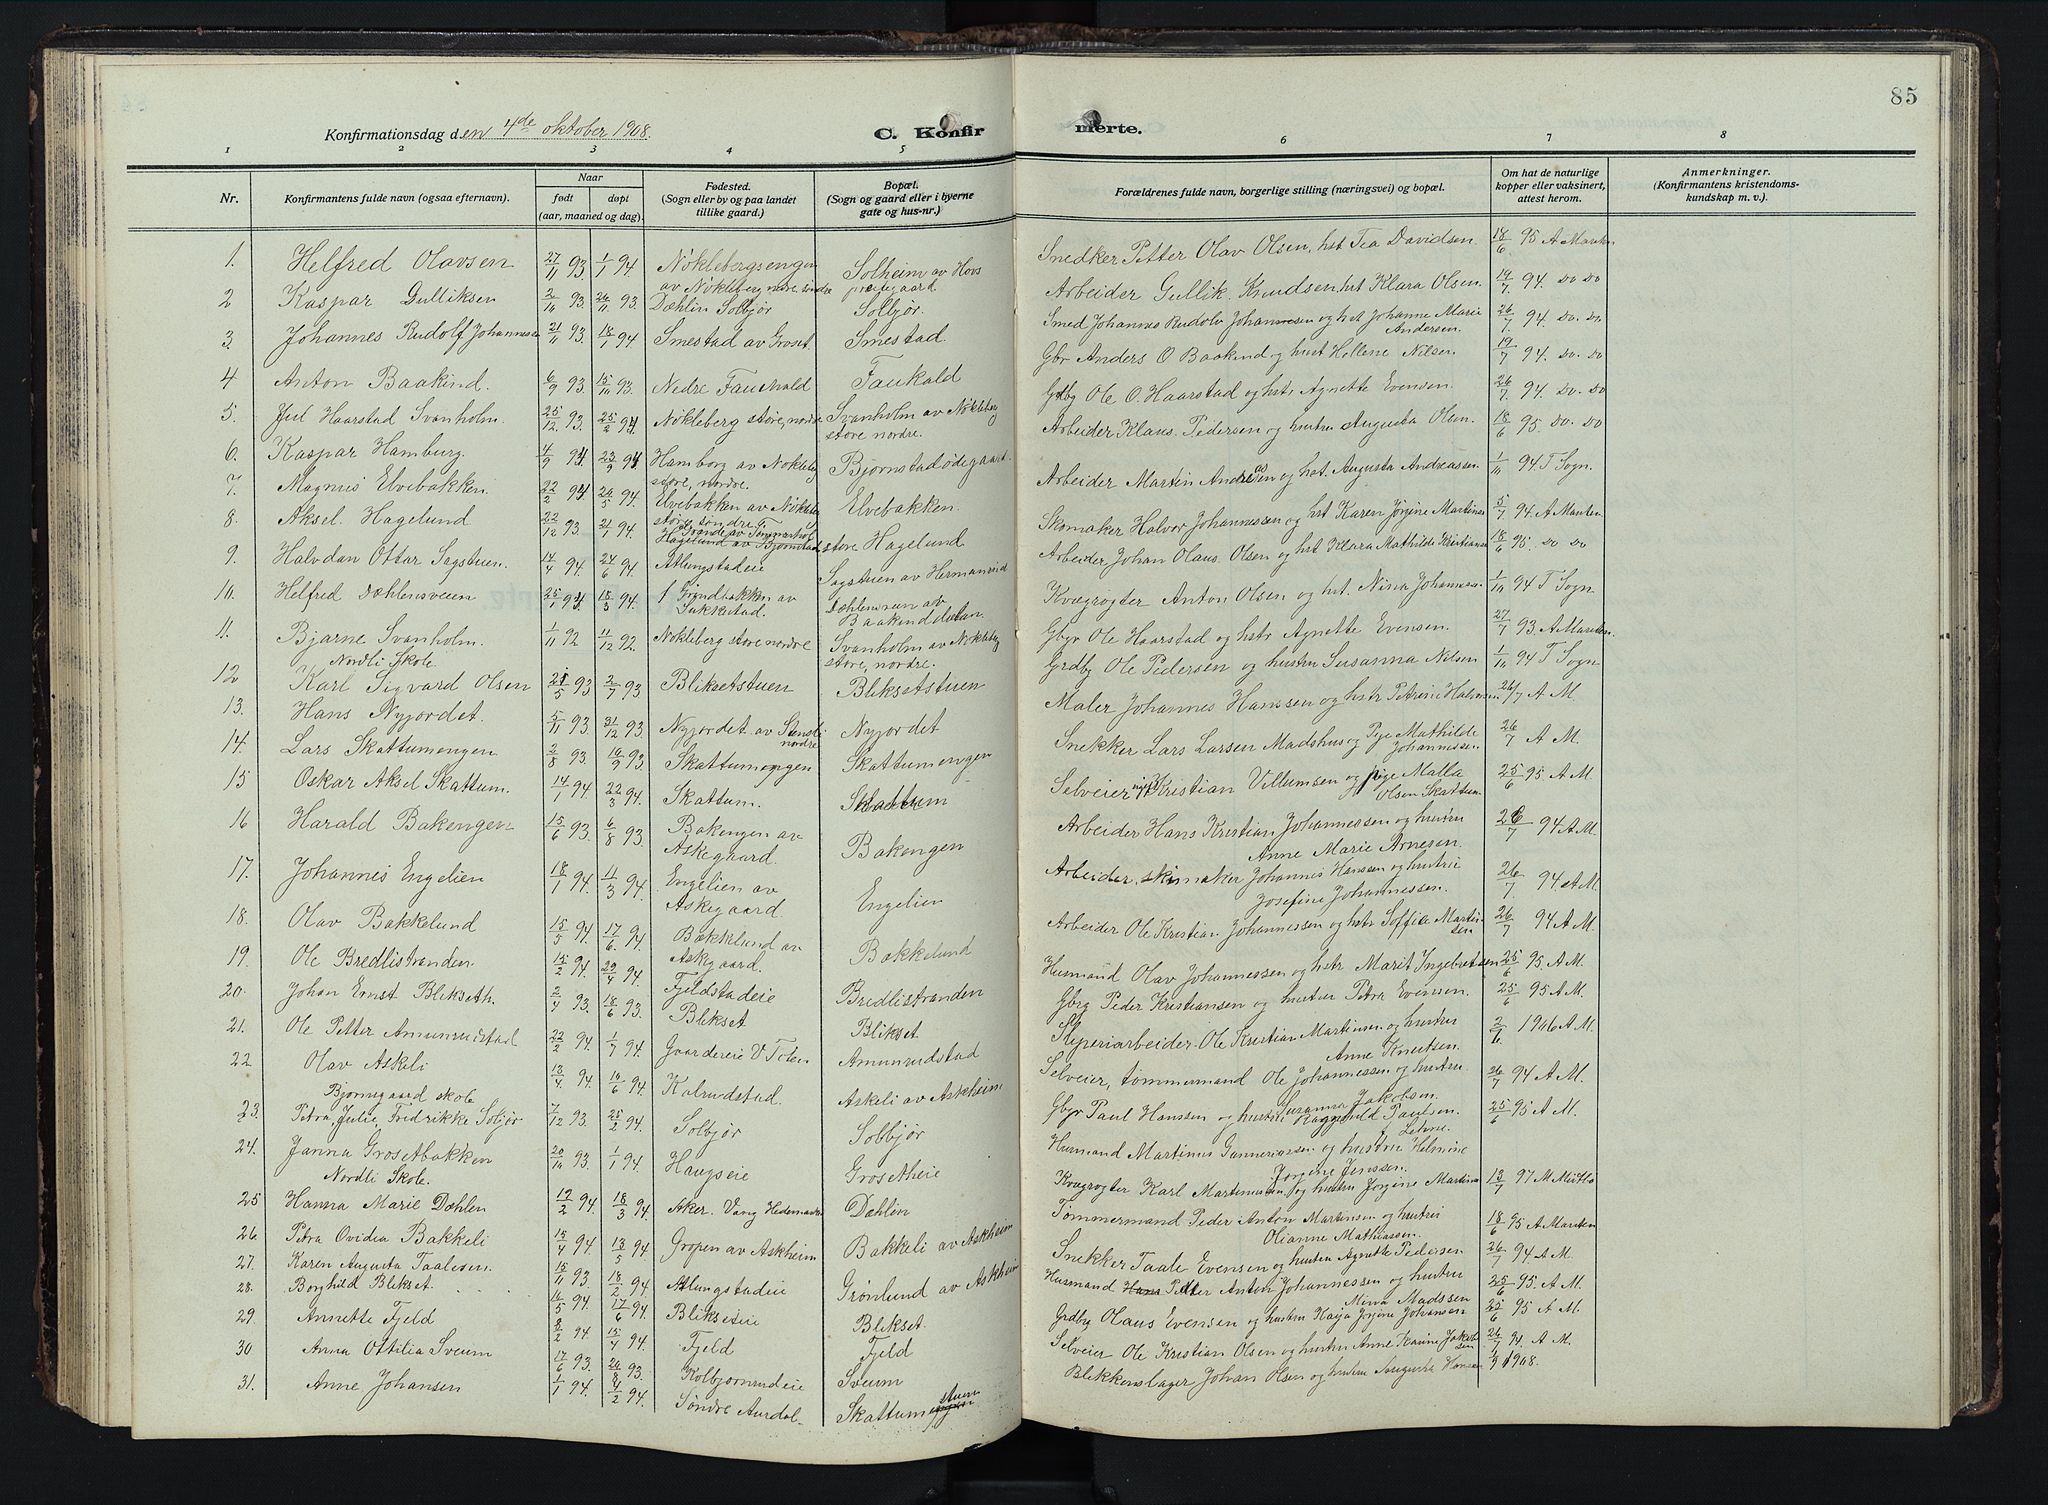 85
Konfirmationsdag den 4de oktober 1908.
C. Konfirmerte.
1 2 3 4 5 6 7 8
Nr.
Konfirmantens fulde navn (ogsaa efternavn).
Naar
født
døpt
(aar, maaned og dag).
Fødested.
(Sogn eller by og paa landet
tillike gaard.)
Bopæl.
(Sogn og gaard eller i byerne
gate og hus-nr.)
Forældrenes fulde navn, borgerlige stilling (næringsvei) og bopæl.
Om hat de naturlige
kopper eller vaksinert,
attest herom.
Anmerkninger.
(Konfirmantens kristendoms-
kundskap m. v.).
1. Helfred Olavsen 27/11 93 1/1 94 Nøklebergsengen av Nøkleberg nedre søndre Solheim av Hovs prestegaard Snedker Petter Olav Olsen, hst Tea Davidsen 18/6 95 A Marsten
2 Kaspar Gulliksen 2/10 93. 26/11 93. Dæhlin Solbjør Solbjør. Arbeider Gullik Knudsen hst Klara Olsen. 19/7 94. Do Do
3. Johannes Rudolf Johannessen 21/11 93. 18/1 94 Smestad av Groset Smestad. Smed Johannes Rudolv Johannesen og hst Johanne Marie Andersen. 26/7 94. Do. Do
4 Anton Baakind. 6/9 93. 15/10 93. Nedre Faukald Faukald Gbr Anders O Baakind og hust Hellene Nilsen. 19/7 94. Do. Do
5. Jul Haarstad Svanholm. 25/12 93. 25/2 94 Nøkleberg store, nordre Svanholm av Nøkleberg store nordre. Grdby Ole O. Haarstad og hst Agnette Evensen. 26/7 94. Do Do
6. Kaspar Hamburg. 4/9 93. 23/9 94 Hamborg av Nøkleberg store, nordre. Bjørnstadødegaard. Arbeider Klaus Pedersen og hustru Augusta Olsen. 18/6 95. Do. Do
7. Magnus Elvebakken. 22/2 94 20/5 94. Elvebakken av Nøkleberg store, søndre Elvebakken. Arbeider Martin Andreasen og hst. Augusta Andreassen 1/10 94 T Sogn.
8. Aksel Hagelund 22/12 93. 21/1 94. Hagelund av Bjørnstad store Hagelund Skomaker Halvor Johannessen og hst Karen Jørgine Martinsen 5/7 94. A Marsten
9. Halvdan Ottar Sagstuen. 14/4 94. 24/6 94. Atlungstadeie Sagstuen av Hermanrud Arbeider Johan Olaus Olsen og hst Klara Mathilde Kristiansen 18/6 95. Do Do
10. Helfred Dæhlensveen 25/1 94 18/3 94. Grindbakken av Sukkestad. Dæhlensveen av Baakinddelutan. Kvægrøgter Anton Olsen og hst. Nina Johannessen 1/10 94 T Sogn
11. Bjarne Svanholm. 1/11 92 11/12 92. Nøkleberg store nordre Svanholm av Nøkleberg store, nordre. Gbyr Ole Haarstad og hstr Agnette Evensen. 27/7 93. A Marsten.
Nordli Skole
12 Karl Sigvard Olsen 21/5 93 2/7 93 Bliksetstuen Bliksetstuen Grdby Ole Pedersen og hustru Susanna Nilsen 1/10 94 T Sogn
13. Hans Nyjordet. 5/11 93. 31/12 93. Nyjordet av Stensli nordre Nyjordet Maler Johannes Hanssen og hstr Petrine Halvorsen 26/7 A M.
14. Lars Skattumengen 2/8 93. 10/9 93. Skattumengen Skattumengen Snekker Lars Larsen Madshus og Pige Mathilde Johannessen 26/7 A M.
15 Oskar Aksel Skattum. 14/1 94. 22/3 94. Skattum. Skattum Selveier Kristian Villumsen og pige Malla Olsen Skattum 25/6 95. A M.
16 Harald Bakengen 15/6 93. 6/8 93. Bakengen av Askegaard. Bakengen Arbeider Hans Kristian Johannessen og hustru Anne Marie Arnesen. 26/7 94 A M.
17. Johannes Engelien 18/1 94. 11/3 94. Engelien av Askegaard. Engelien Arbeider, skomaker Johannes Hanssen og hustru Josefine Johannessen. 26/7 94. A M.
18. Olav Bakkelund 15/5 94. 17/6 94. Bakkelund av Askegaard. Bakkelund Arbeider Ole Kristian Johannessen og hstr Soffie Martinsen 26/7 94 A M.
19. Ole Bredlistranden. 15/2 94. 29/4 94. Fjeldstadeie Bredlistranden Husmand Olav Johannessen og hstr Marit Ingebretsen 25/6 95 A M.
20. Johan Ernst Blikseth. 2/4 93. 18/6 93. Blikset Blikset Gbrg Peder Kristiansen og hustru Petra Evensen. 25/6 95 A M.
21. Ole Petter Amunrudstad 22/2 94. 1/7 94. Gaardereie V Toten Amunrudstad Sliperiarbeider Ole Kristian Martinsen og hustru Anne Knutsen. 2/6 1906 A M.
22 Olav Askeli 13/4 94. 10/6 94. Kolrudstad. Askeli av Askheim Selveier, tømmermand Ole Johannessen og hustru Susanna Jakobsen. 26/7 94 A M.
Bjørnsgaard skole
23. Petra, Julie, Fredrikke Solbjør 7/12 93. 25/2 94. Solbjør Solbjør Gbyr Paul Hanssen og hustru Ragnhild Paulsen. 25/6 95 A M.
24. Janna Grosetbakken 20/10 93. 1/1 94. Haugseie Grosetheie Husmand Martinus Gunneriussen og hustru Helmine Jørgine Jenssen.
Nordli Skole.
25 Hanna Marie Dæhlen 12/2 94. 18/3 94. Aker. Vang Hedemarken Dæhlin Kvægrøgter Karl Martinussen og hustru Jørgine Martinsen 13/7 97 M
26. Petra Ovidia Bakkeli 15/4 94. 13/5 94. Gropen av Askheim Bakkeli av Askheim Tømmermand Peder Anton Martinsen og hustru Olianne Mathiassen. 18/6 95 A Marsten
27. Karen Augusta Taalesen. 15/11 93. 18/2 94. Atlungstadeie Grønlund av Askheim Snekker Taale Evensen og hustru Agnette Pedersen 26/7 94 A M.
28. Borghild Blikset. 10/5 94. 17/6 94. Blikseteie Blikset. Husmand Petter Anton Johannessen og hustru Mina Madssen 25/6 95. A M.
29. Annette Fjeld 8/2 94. 15/4 94. Fjeld Fjeld Grdby Olaus Evensen og hustru Kaja Jørgine Johansen 25/6 95 A M.
30 Anna Ottilia Sveum 17/6 93. 20/8 93. Kolbjørnrudeie Sveum Selveier Ole Kristian Olsen og hustru Anne Karine Jakobsen 26/7 94. A M.
31. Anne Johansen 1/1 94. 4/2 94. Søndre Aurdal Skattumstuen Blikkenslager Johan Olsen og hustru Auguste Hansen 1/9 1908.